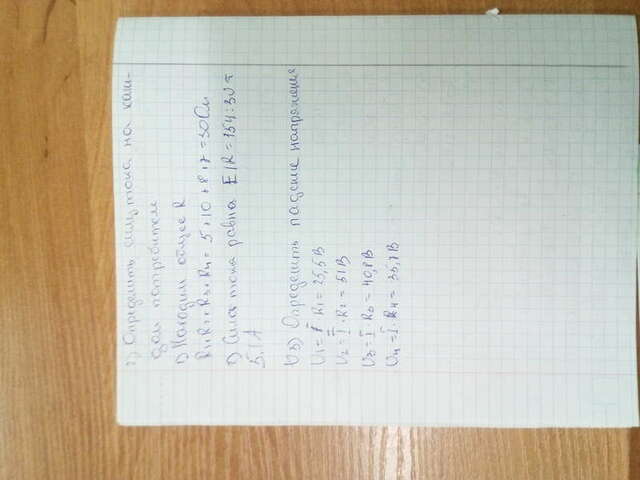 2) Определить силу тока на каж-
дом потребителе
1) Находим общее R
R1+R2+R3+R4 = 5+10+8+7=30 Ом
2) Сила тока равна E/R = 154:30=
5.1А
3) Определить падение напряжения
U1=I R1 = 25,5В
U2=I·R2 = 51В
U3=I·R3 = 40,8В
U4=I·R4 = 35,7В